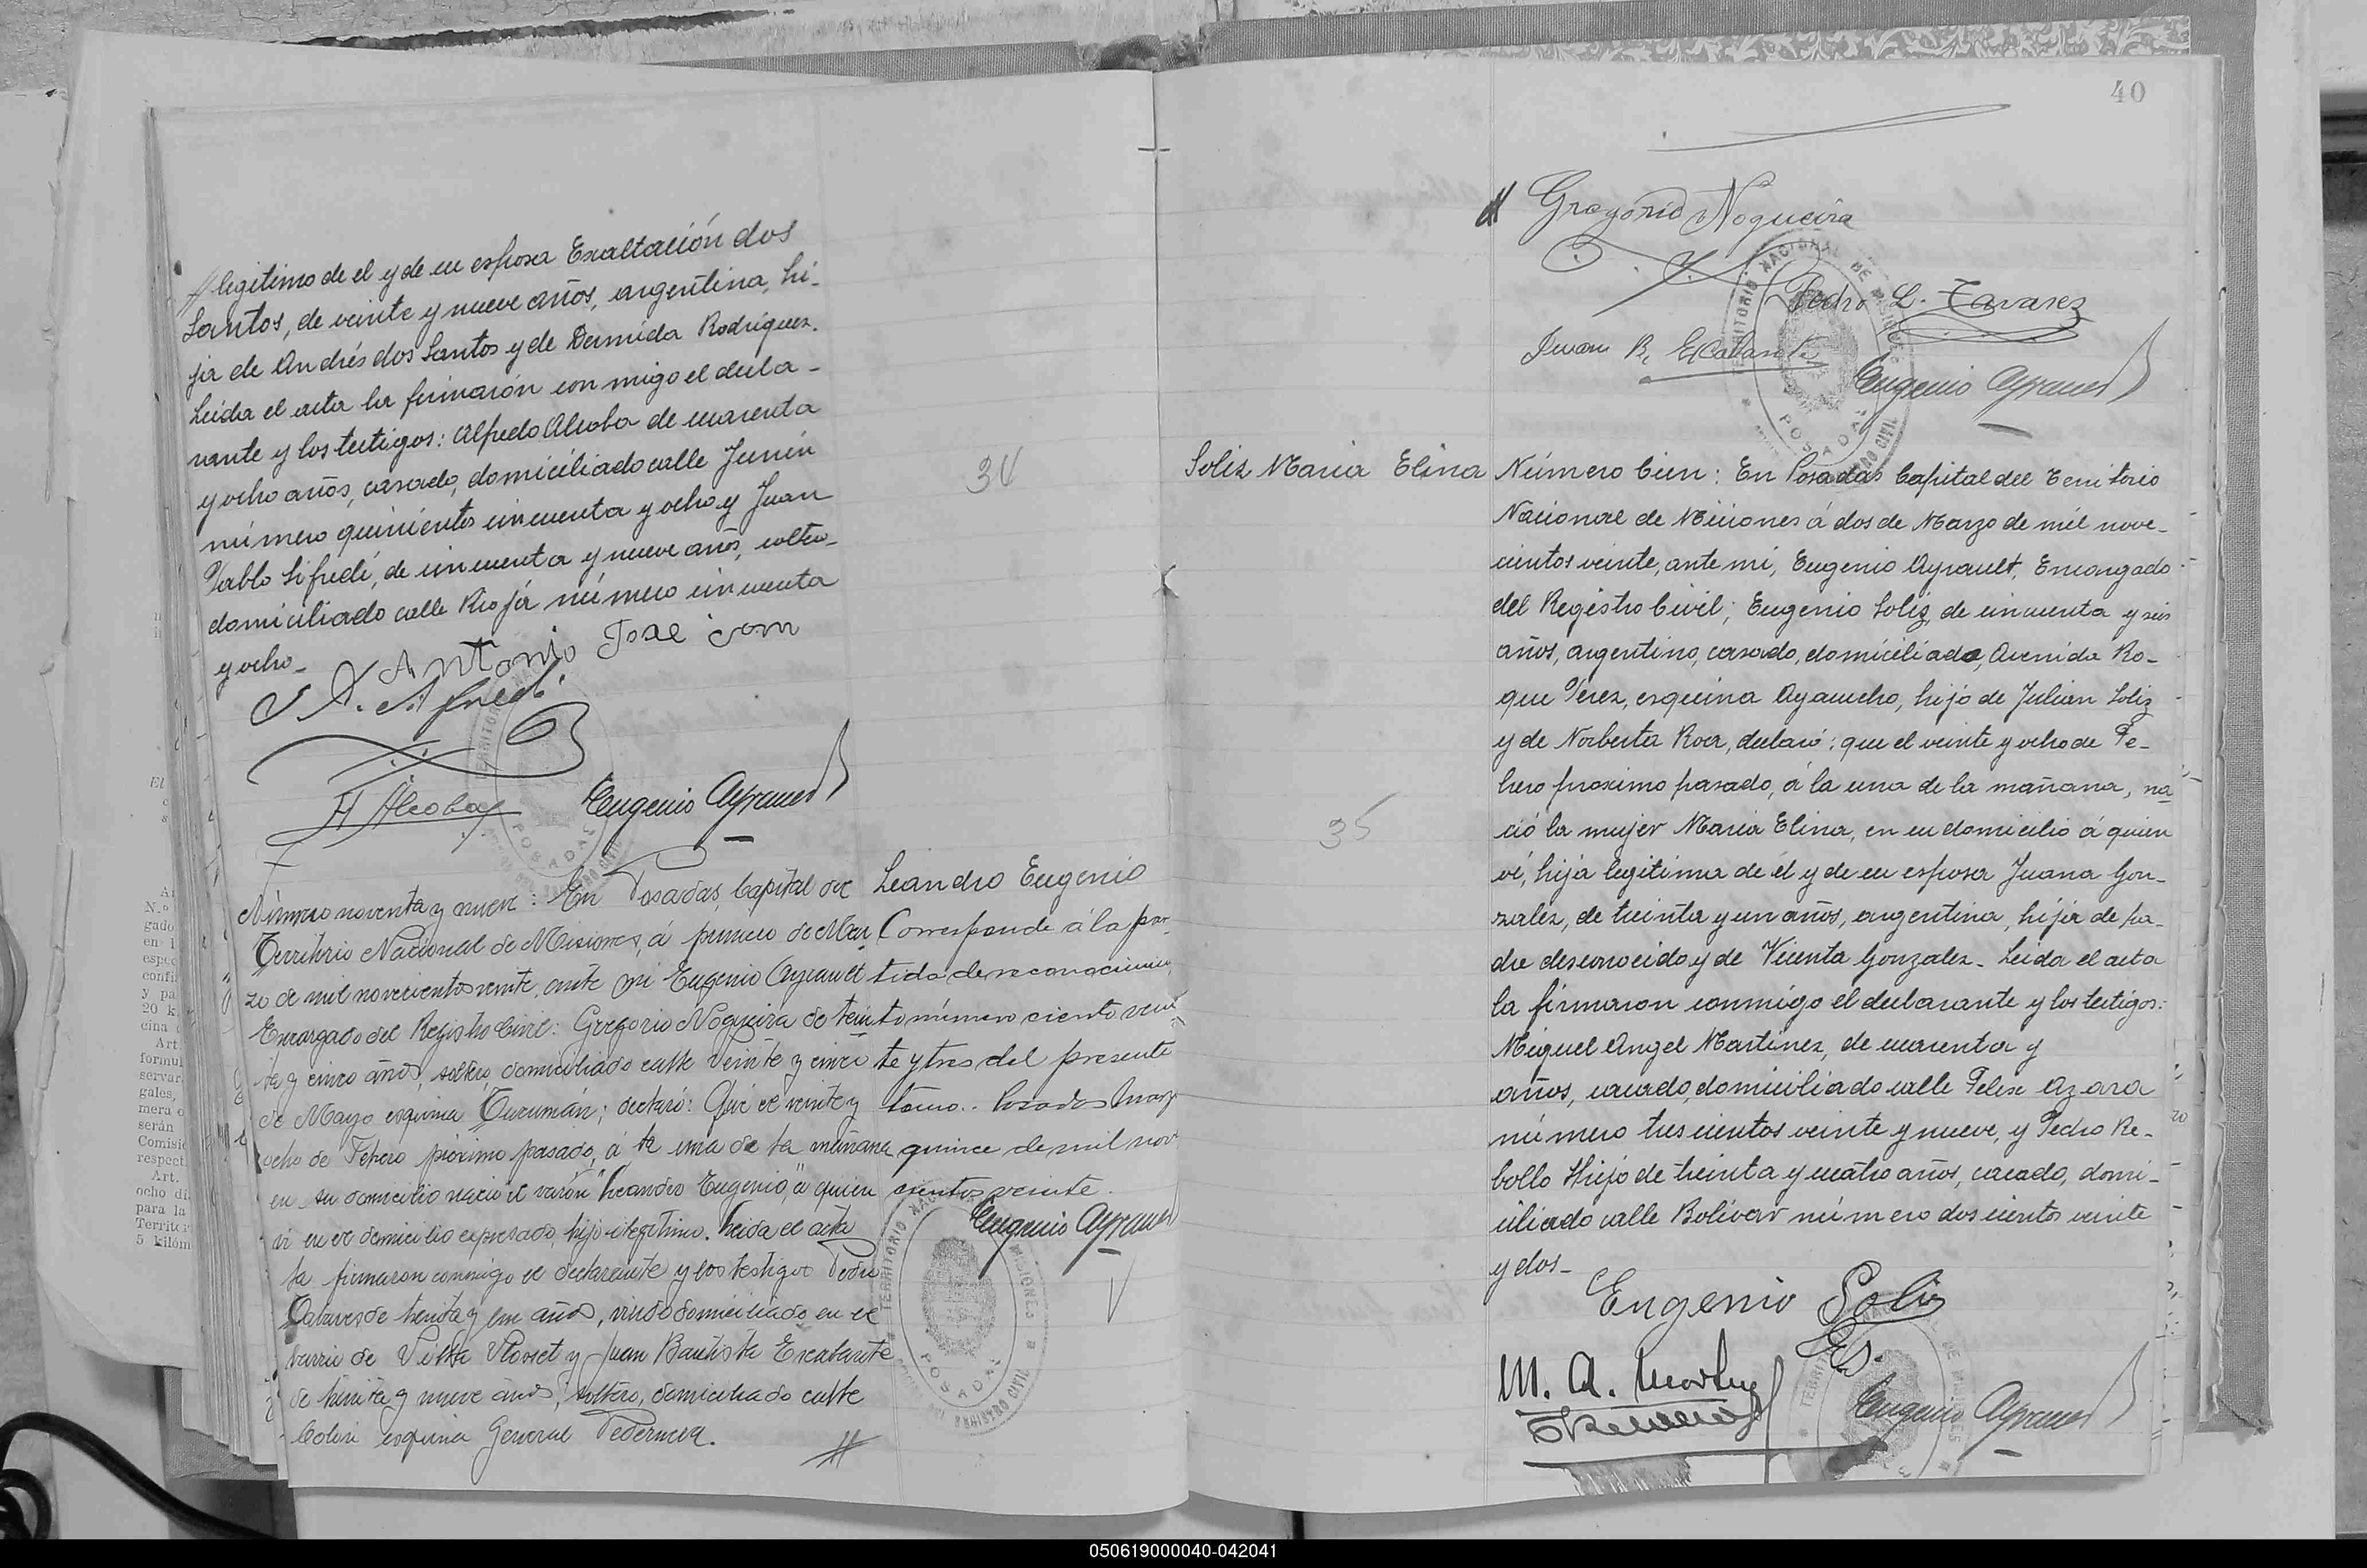 // legitimo de el y de su esposa Exaltación dos
Santos, de veinte y nueve años, argentina, hi-
ja de Andrés dos Santos y de Dermida Rodríguez.
Leida el acta la firmarón con migo el decla-
rante y los testigos: Alfredo Alcoba de cuarenta
y ocho años, casado, domiciliado calle Junín
número quinientos cincuenta y ocho y Juan
Pablo Sifredi, de cincuenta y nueve años, soltero
domiciliado calle Rioja número cincuenta
y ocho-
Antonio José
A Alcoba
Eugenio Ayrault
34
Número noventa y nueve: En Posadas, Capital del
Territorio Nacional de Misiones, á primero de Mar
zo de mil novecientos veinte, ante mi Eugenio Ayrault
Encargado del Registro Civil: Gregorio Nogueira de trein
ta y cinco años, soltero, domiciliado calle Veinte y cinco
de Mayo esquina Tucumán; declaró: Que el veinte y
ocho de Febrero próximo pasado, á la una de la mañana
en su domicilio nació el varón "Leandro Eugenio," á quien
ví en el domicilio expresado, hijo ilegítimo. Leida el acta
la firmaron conmigo el declarante y los testigos Pedro
Tavares de treinta y un años, viudo domiciliado en el
barrio de Villa y Juan Bautista Escalante
de treinta y nueve años, soltero, domiciliado calle
Colón esquina General Pedernera. //
Leandro Eugenio
Corresponde á la par-
tida de reconocimien
to número ciento vein
te y tres del presente
tomo.. Posadas Marzo
quince de mil nove
cientos veinte.
Eugenio Ayrault
TERRITORIO NACIONAL DE MISIONES
POSADAS
REGISTRO CIVIL
40
// Gregorio Nogueira
Pedro L. Tavarez
Juan B. Escalante
Eugenio Ayrault
Soliz Maria Elina
35
Número Cien: En Posadas Capital del Territorio
Nacional de Misiones á dos de Marzo de mil nove-
cientos veinte, ante mi, Eugenio Ayrault, Encargado
del Registro Civil; Eugenio Soliz, de cincuenta y seis
años, argentino, casado, domiciliado, Avenida Ro-
que Perez, esquina Ayacucho, hijo de Julian Soliz
y de Norberta Roa, declaró: que el veinte y ocho de Fe-
brero proximo pasado, á la una de la mañana, na
ció la mujer Maria Elina, en su domicilio á quien
ví, hija legitima de él y de su esposa Juana Gon-
zalez, de treinta y un años, argentina, hija de pa-
dre desconocido y de Vicenta Gonzalez- Leida el acta
la firmaron conmigo el declarante y los testigos:
Miguel Angel Martinez, de cuarenta y
años, casado, domiciliado calle Felix Azara
número trescientos veinte y nueve, y Pedro Re-
bollo Hijo de treinta y cuatro años, casado, domi-
ciliado calle Bolívar número doscientos veinte
y dos-
Eugenio Soliz
M. A. Martinez
Eugenio Ayrault
050619000040-042041